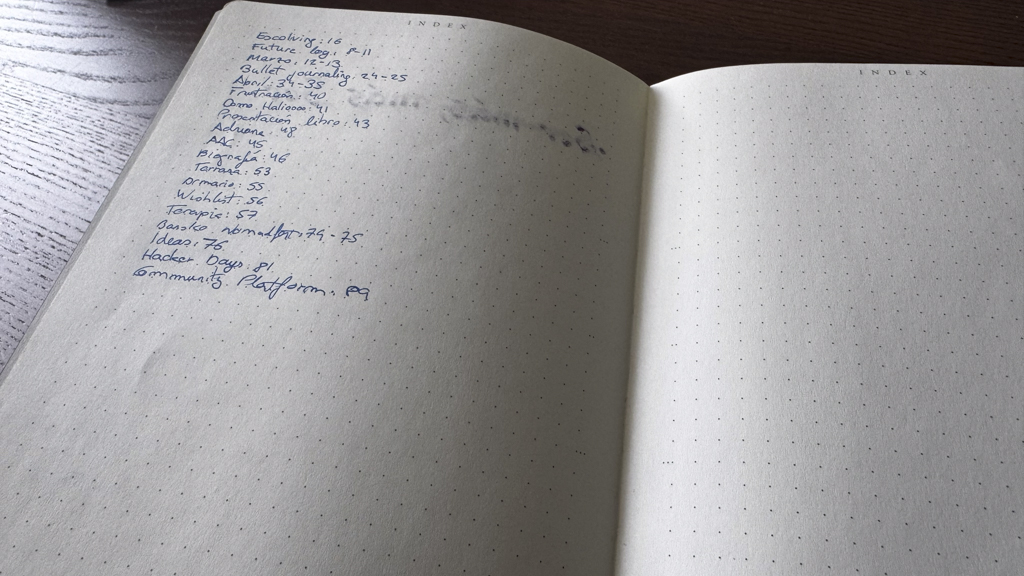 INDEX
Ecoliving: 16
Future log: 8-11
Marzo: 12-13
Bullet journaling: 24-25
Abril: 34-35
Frustración: 40
Como: 41
Presentación libro: 43
Adriana: 48
AAC: 45
Biografía: 46
Tarrasa: 53
Armario: 55
Wishlist: 56
Terapia: 57
Ideas: 76
Hacker Days: 81
Community Platform:
INDEX